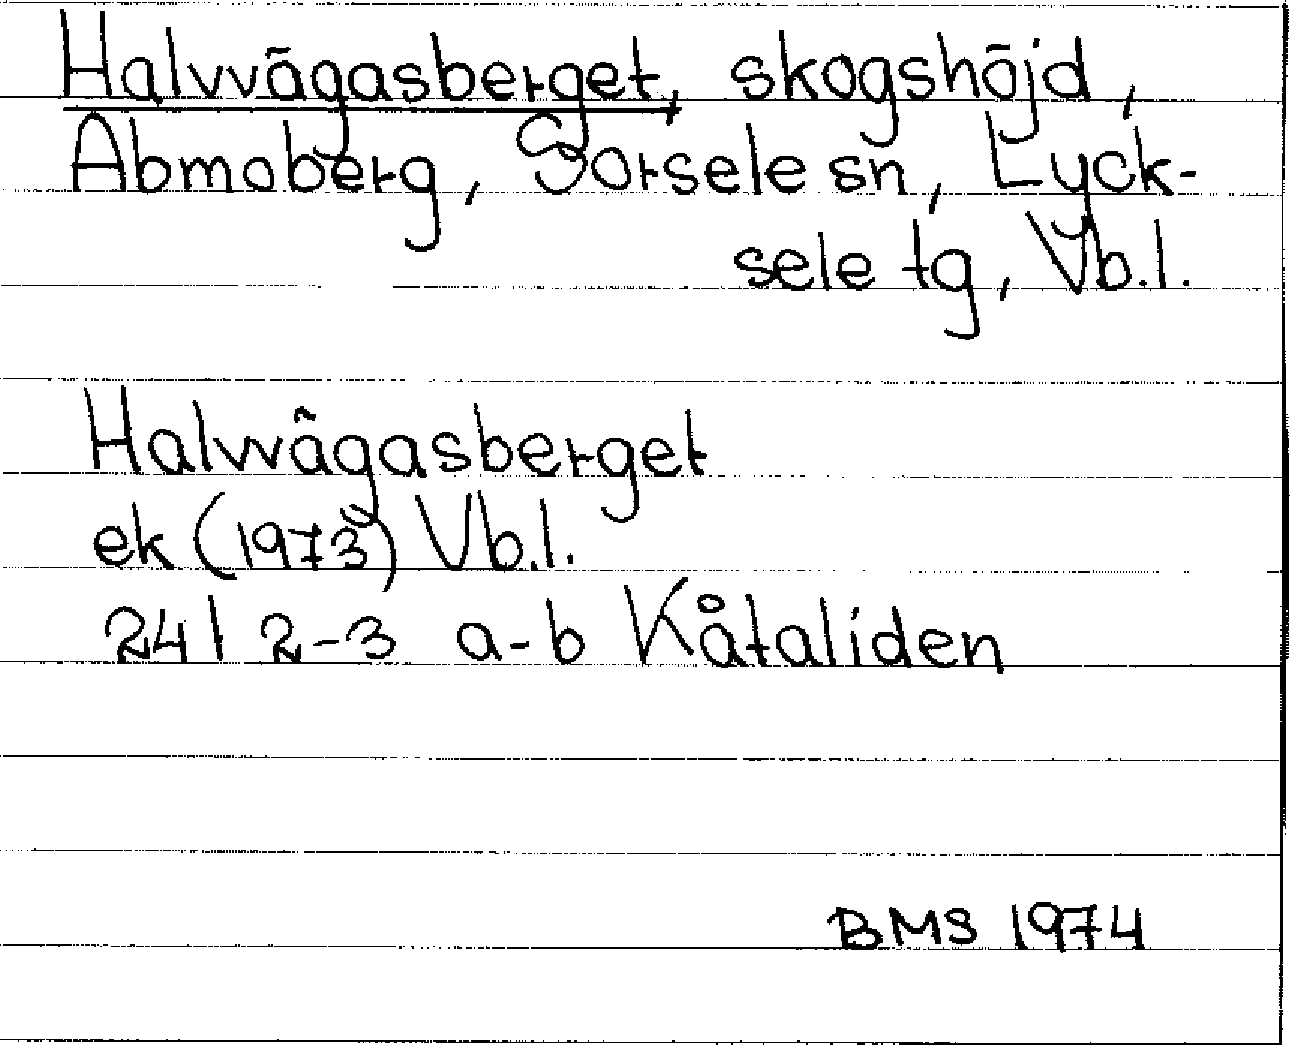 Halvvägasberget, skogshöjd,
Abmoberg, Sorsele sn, Lyck-
sele tg, Vb.l.
Halvvägasberget
ek (1973) Vb.l.
24 I 2-3 a-b Kåtaliden
BMS 1974